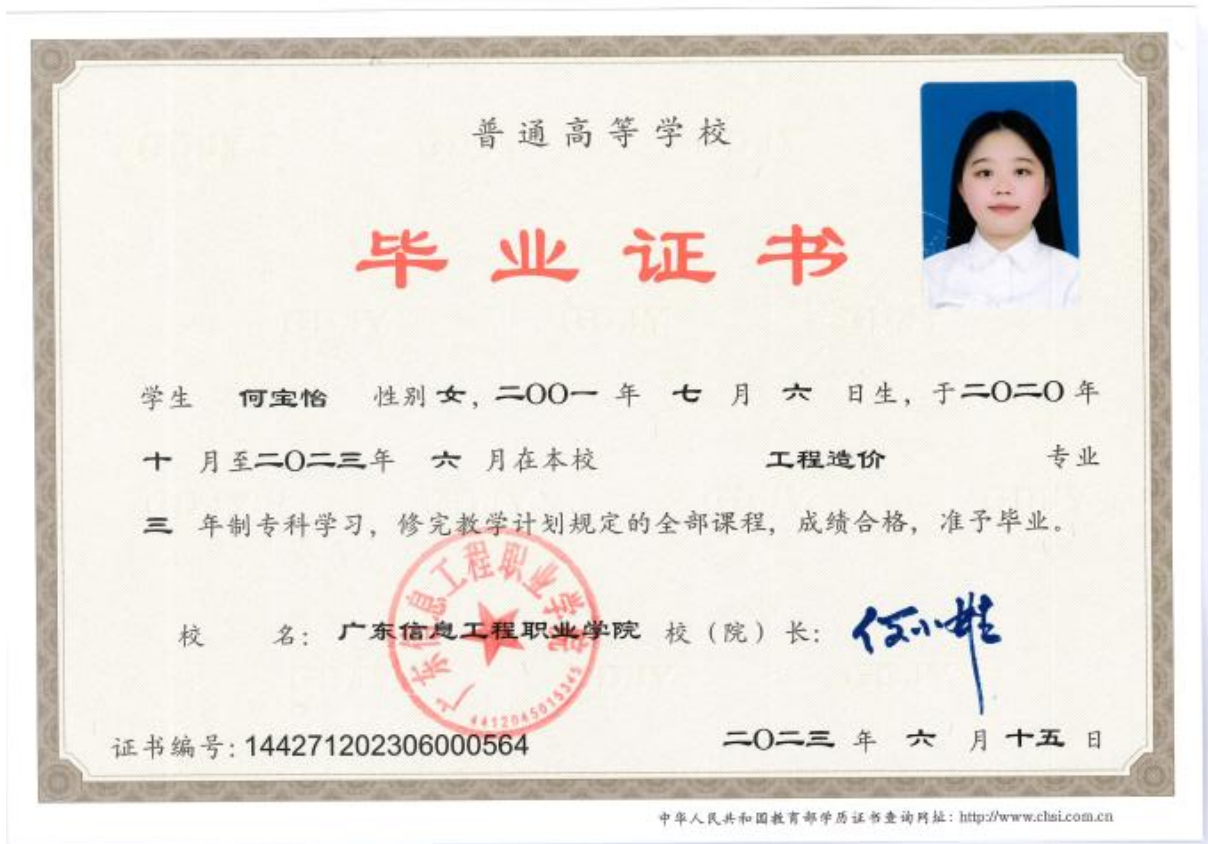 普通高等学校
毕业证书
学生 何宝怡 性别 女，二〇〇一 年 七 月 六 日生，于二〇二〇 年
十 月至二〇二三年 六 月在本校 工程造价 专业
三 年制专科学习，修完教学计划规定的全部课程，成绩合格，准予毕业。
校 名：广东信息工程职业学院 校（院）长：
广东信息工程职业学院
4412045015345
证书编号：144271202306000564 二〇二三 年 六 月 十五 日
中华人民共和国教育部学历证书查询网址：http://www.chsi.com.cn